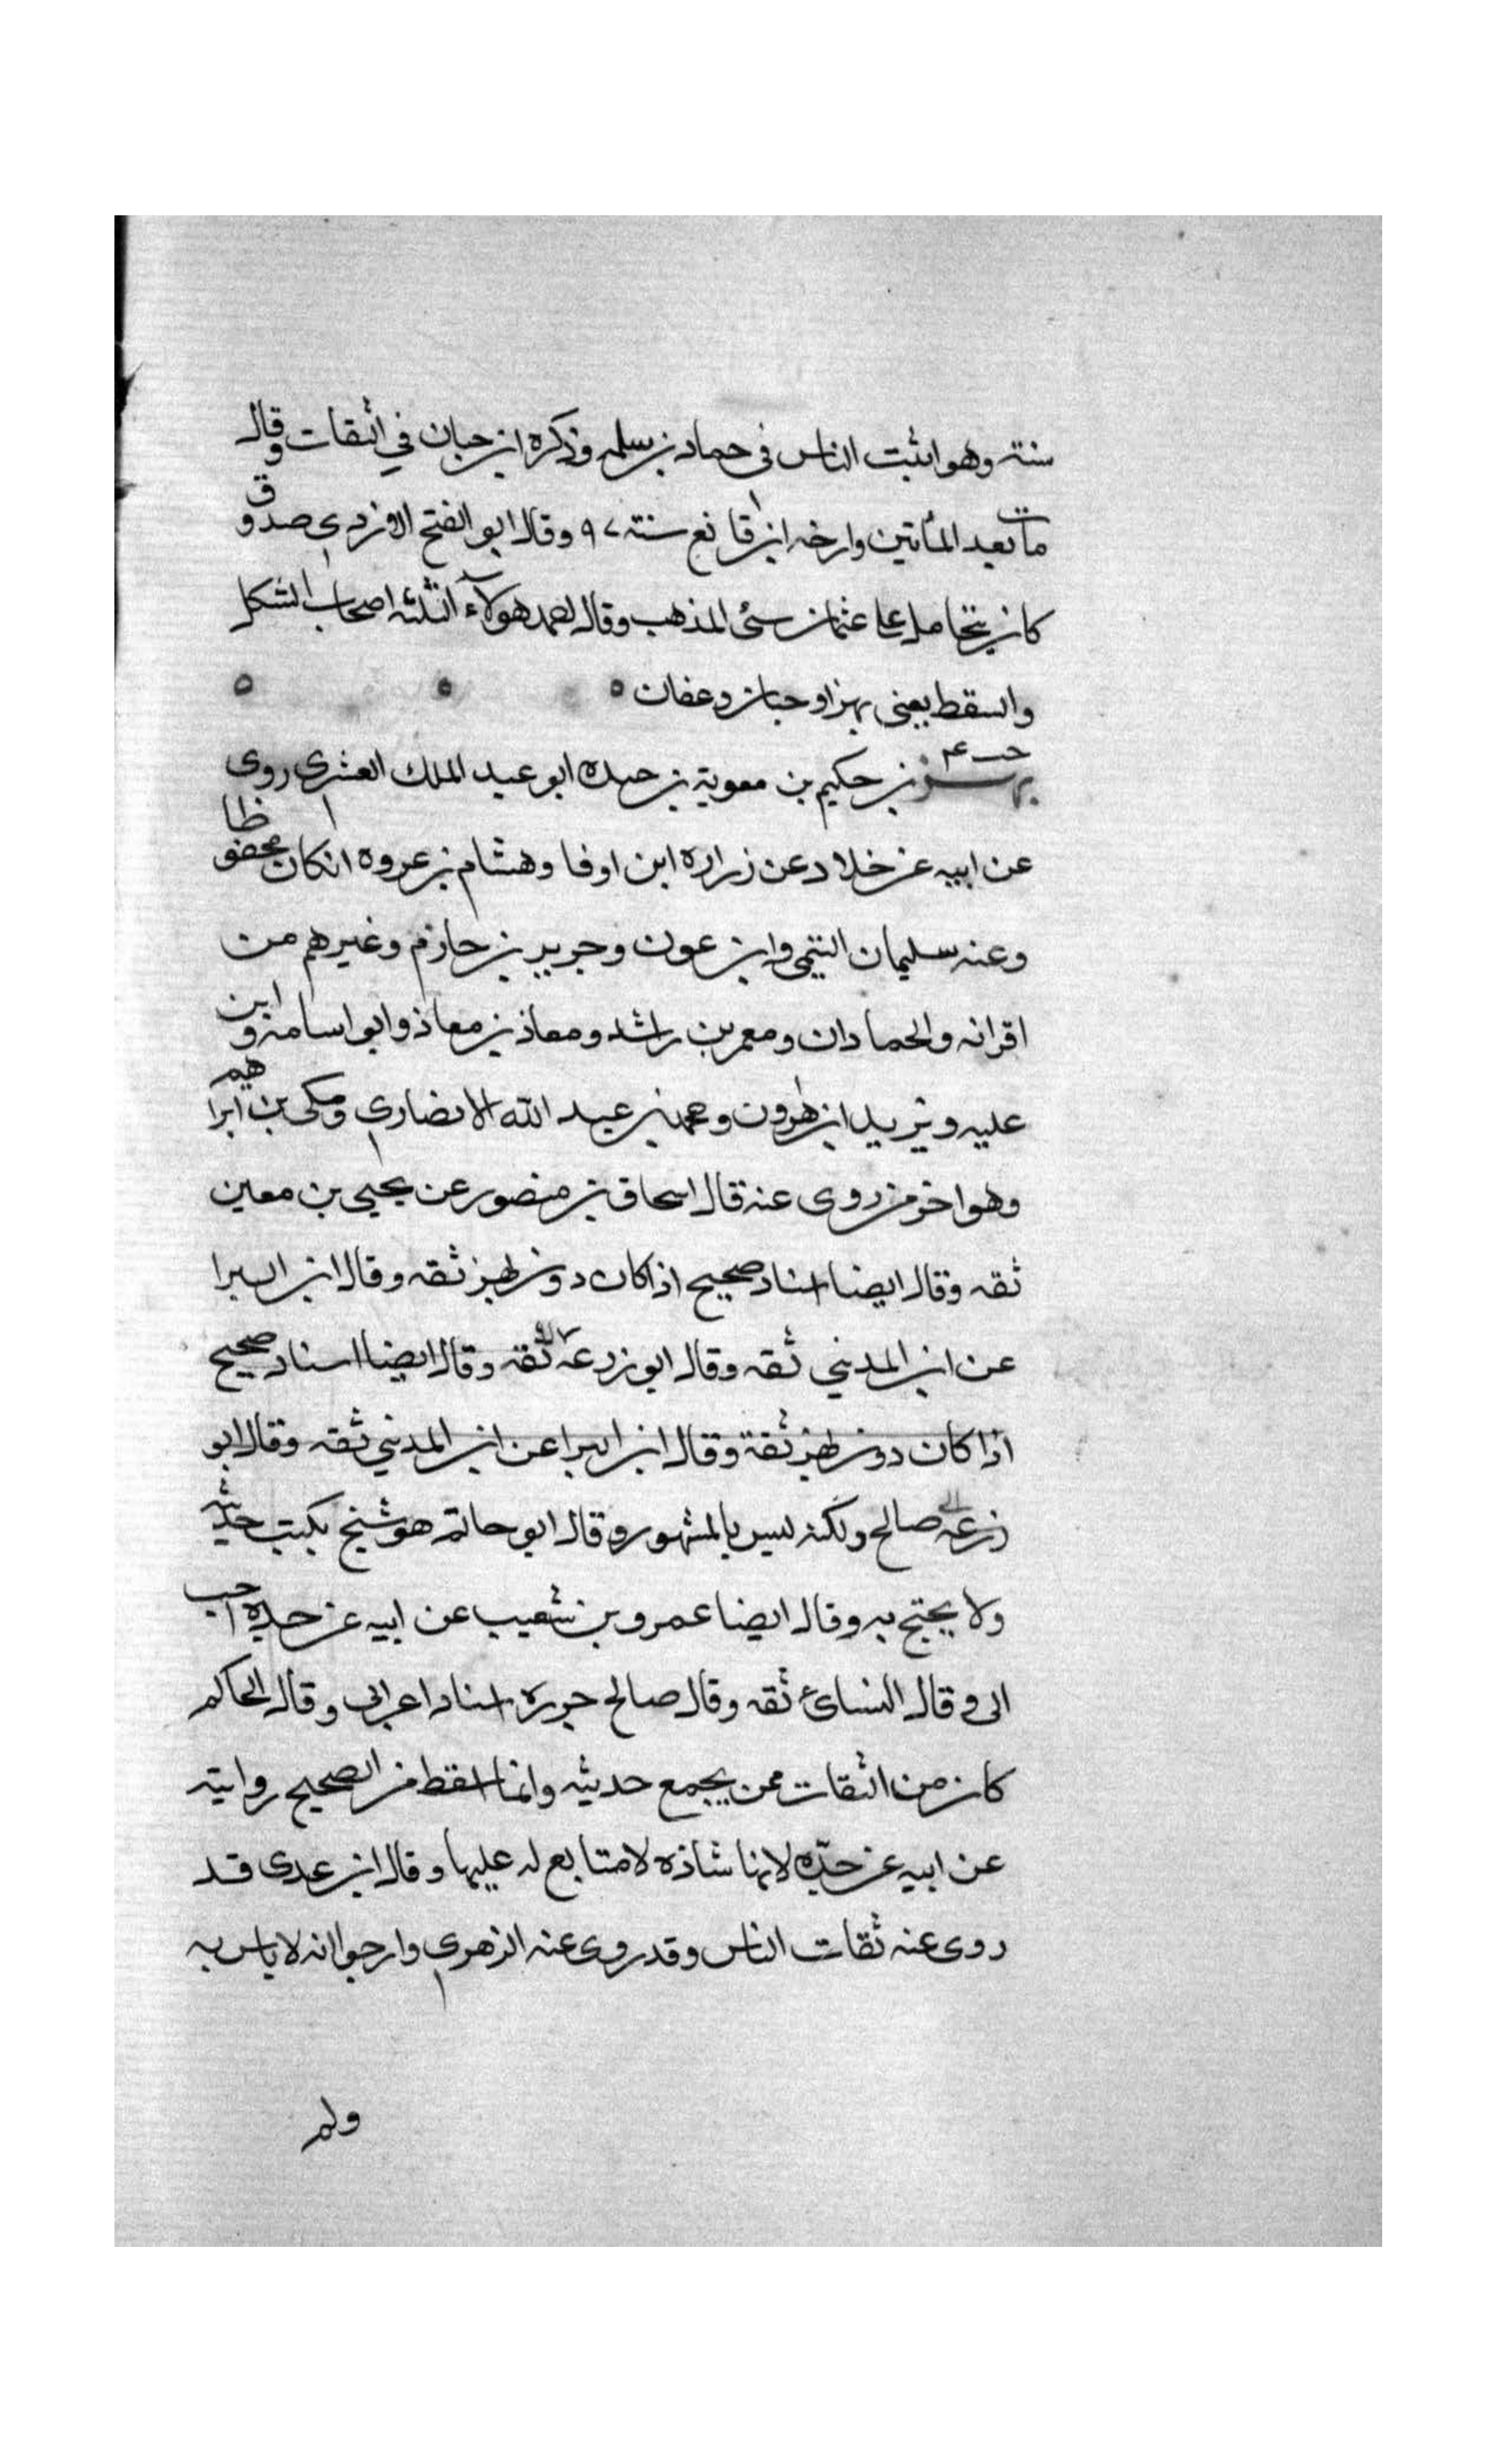 سنته وهو اثبت الناس فى حماد بن سلمه وذكره ابن حبان في الثقات وقال
مات بعد المأتين وارخه ابن قانع سنته ٩٧ وقال ابو الفتح الازدي صدوق
كان يتحامل على عثمان سئ المذهب وقال احمد هولاء الثلثه اصحاب الشكل
والسقط يعني بهزا وحبان وعفان ٥ ٥ ٥
خت ٤
بهز بن حكيم بن معوية بن حيده ابو عبد الملك القشري روى
عن ابيه عن خلاد عن زراره ابن اوفا وهشام بن عروه انكان محفوظا
وعنه سليمان التيمي وابن عون وجرير بن حازم وغيرهم من
اقرانه والحمادان ومعمر بن راشد ومعاذ بن معاذ وابو اسامه وابن
عليه ويزيد ابن هرون ومحمد بن عبد الله الانصاري ومكي بن ابراهيم
وهو اخر من روى عنه قال اسحاق بن منصور عن يحيى بن معين
ثقه وقال ايضا اسناد صحيح اذا كان دون بهز ثقه وقال ابن البرا
عن ابن المديني ثقه وقال ابو زرعه ثقه وقال ايضا اسناد صحيح
اذا كان دون بهز ثقة وقال ابن البرا عن ابن المديني ثقه وقال ابو
زرعه صالح ولكنه ليس بالمشهور وقال ابو حاتم هو شيخ يكتب حديثه
ولا يحتج به وقال ايضا عمرو بن شعيب عن ابيه عن جده احب
الى وقال النسائ ثقه وقال صالح جزره اسناد اعرابى وقال الحاكم
كان من الثقات ممن يجمع حديثه وانما اسقط من الصحيح روايته
عن ابيه عن جدّه لانها شاذه لا متابع له عليها وقال ابن عدى قد
روى عنه ثقات الناس وقد روى عنه الزهري وارجوا انه لا باس به
ولم